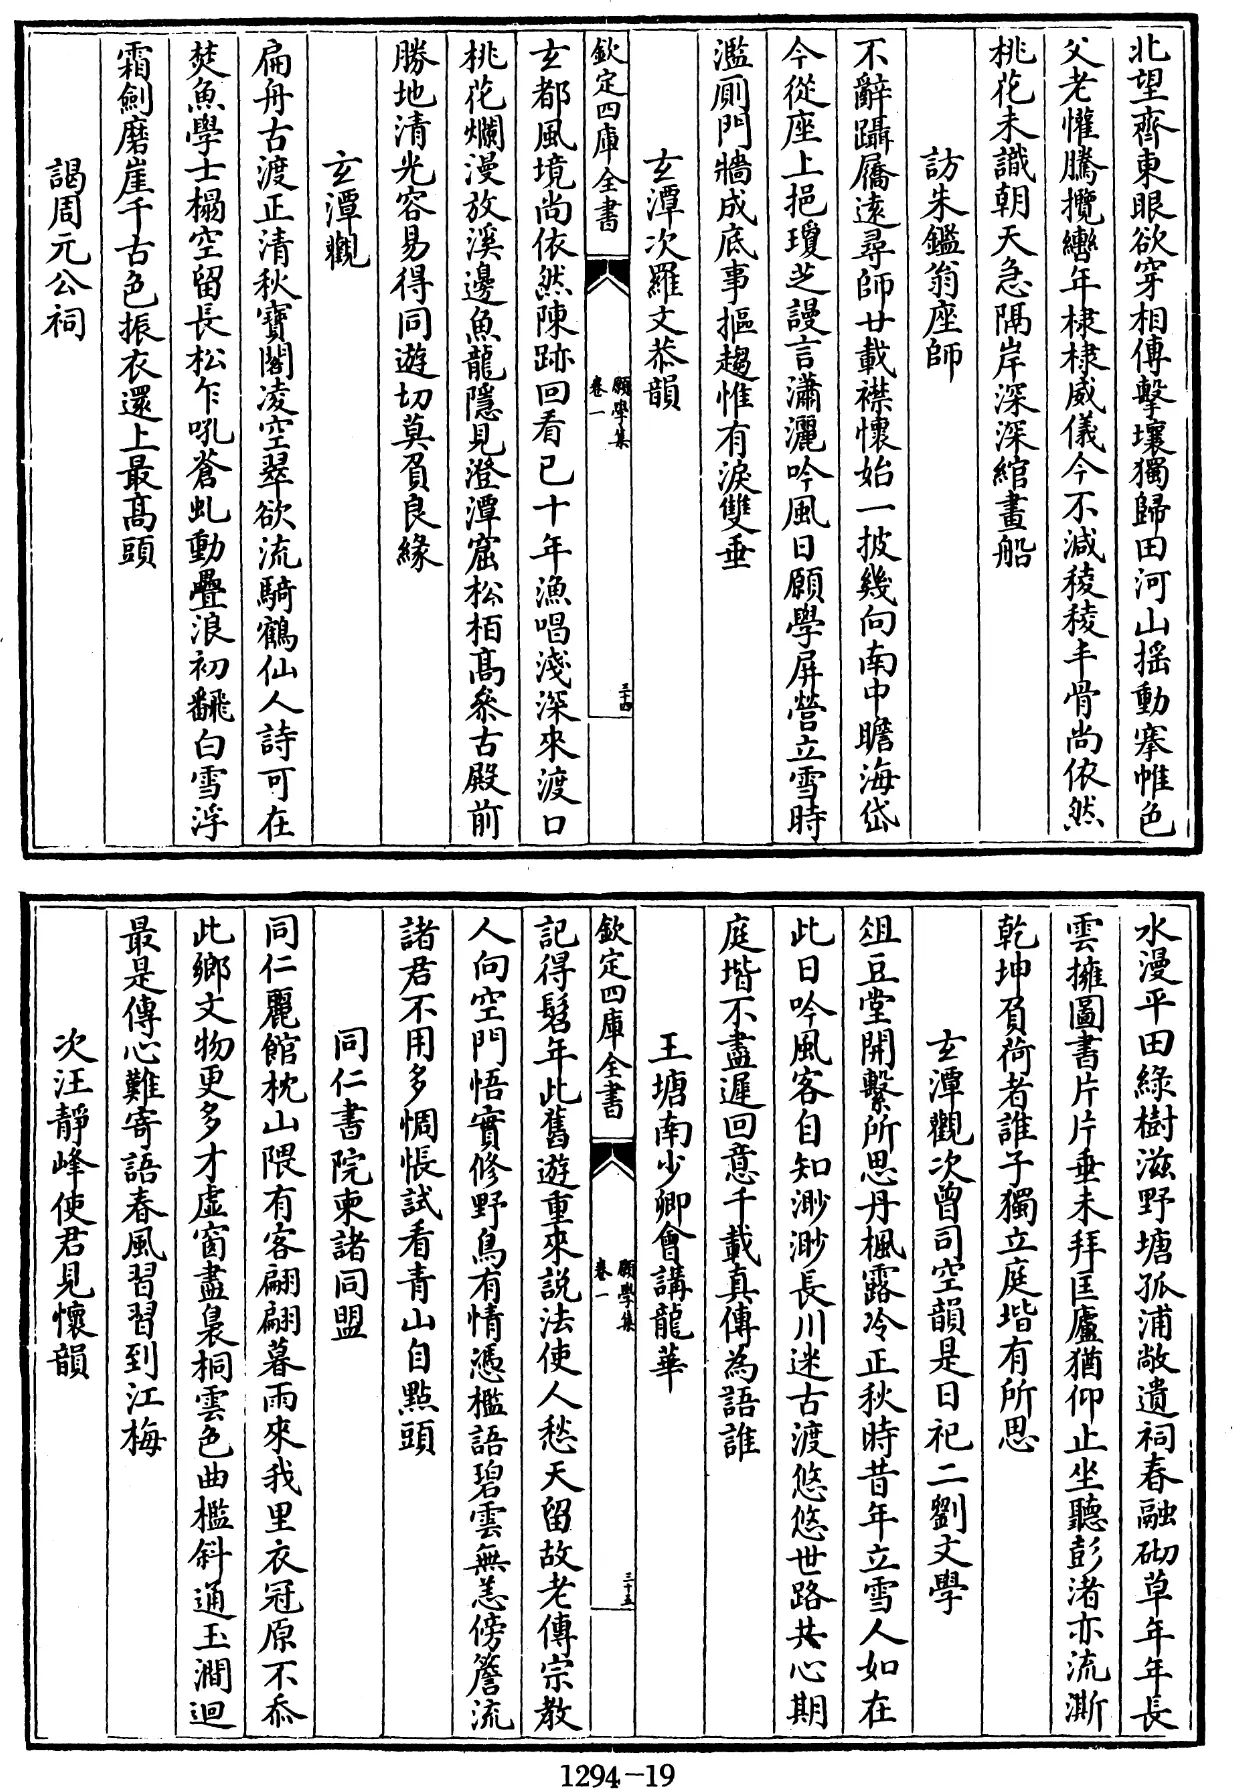 北望齊東眼欲穿相傳擊壤獨歸田河山揺動搴帷色
父老懽騰攬轡年棣棣威儀今不減稜稜丰骨尚依然
桃花未識朝天急隔岸深深綰畫船
訪朱鑑翁座師
不辭躡屩遠尋師廿載襟懷始一披幾向南中瞻海岱
今從座上挹瓊芝謾言瀟灑吟風日願學屏營立雪時
濫厠門牆成底事摳趨惟有淚雙垂
玄潭次羅文恭韻
欽定四庫全書
願學集
卷一
三十四
玄都風境尚依然陳跡回看已十年漁唱淺深來渡口
桃花爛漫放溪邊魚龍隱見澄潭窟松栢髙叅古殿前
勝地清光容易得同遊切莫負良緣
玄潭觀
扁舟古渡正清秋寶閣凌空翠欲流騎鶴仙人詩可在
焚魚學士榻空留長松乍吼蒼虬動疊浪初飜白雪浮
霜劍磨崖千古色振衣還上最髙頭
謁周元公祠
水漫平田綠樹滋野塘孤浦敞遺祠春融砌草年年長
雲擁圖書片片垂未拜匡廬猶仰止坐聽彭渚亦流澌
乾坤負荷者誰子獨立庭堦有所思
玄潭觀次曾司空韻是日祀二劉文學
俎豆堂開繫所思丹楓露冷正秋時昔年立雪人如在
此日吟風客自知渺渺長川迷古渡悠悠世路共心期
庭堦不盡遲回意千載真傳為語誰
王塘南少卿會講龍華
欽定四庫全書
願學集
卷一
三十五
記得髫年此舊遊重來説法使人愁天留故老傳宗教
人向空門悟實修野鳥有情憑檻語碧雲無恙傍簷流
諸君不用多惆悵試看青山自點頭
同仁書院柬諸同盟
同仁麗館枕山隈有客翩翩暮雨來我里衣冠原不忝
此鄉文物更多才虛窗盡裊桐雲色曲檻斜通玉澗迴
最是傳心難寄語春風習習到江梅
次汪靜峰使君見懷韻
1294-19